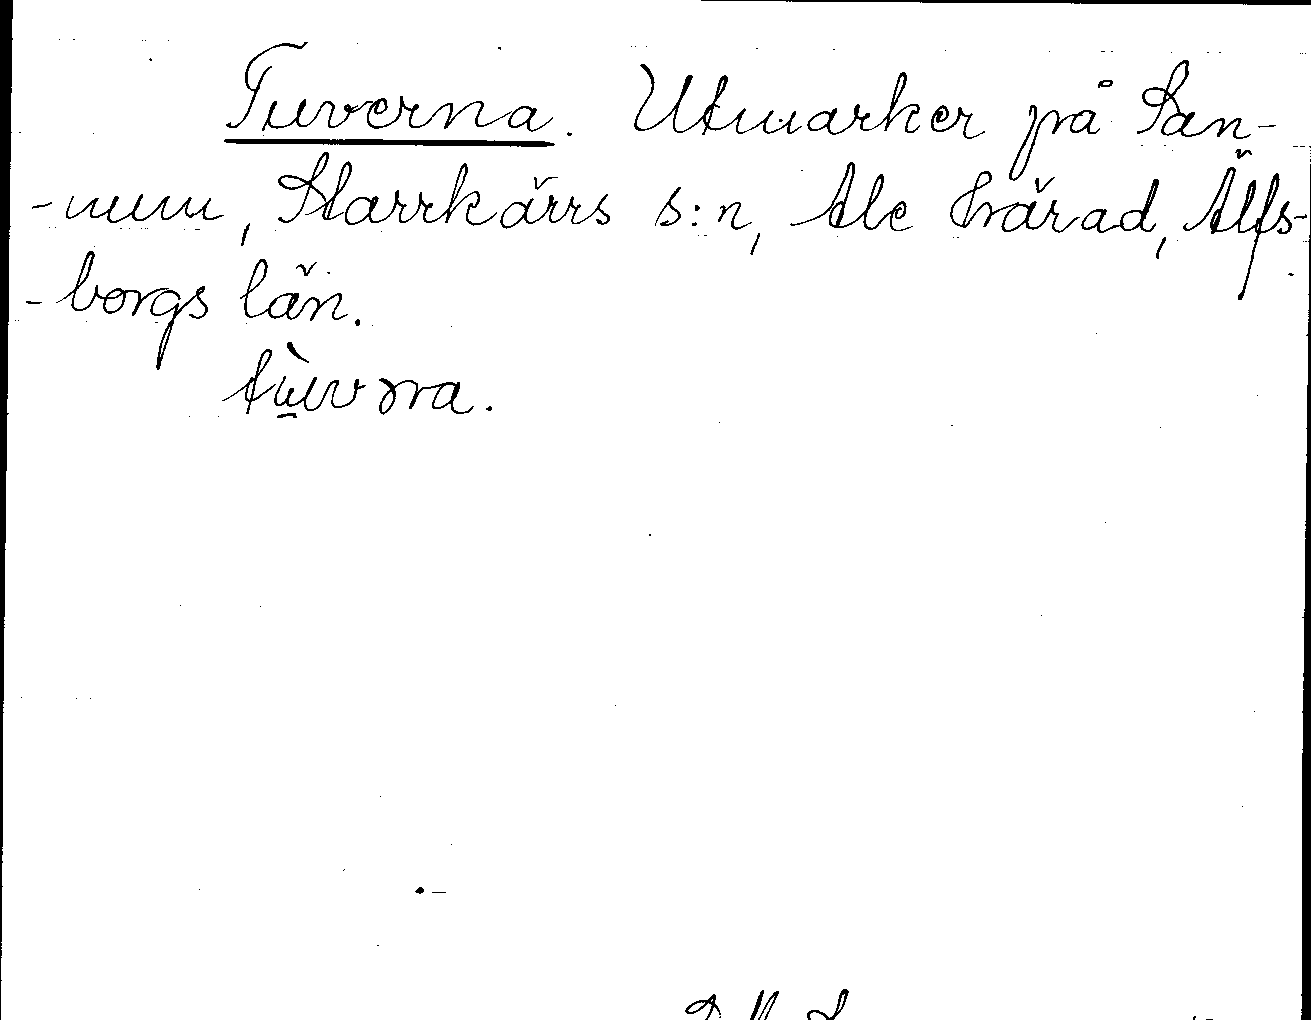 Tuverna. Utmarker på San-
-num, Starrkärrs s:n, Ale härad, Älfs-
-borgs län.